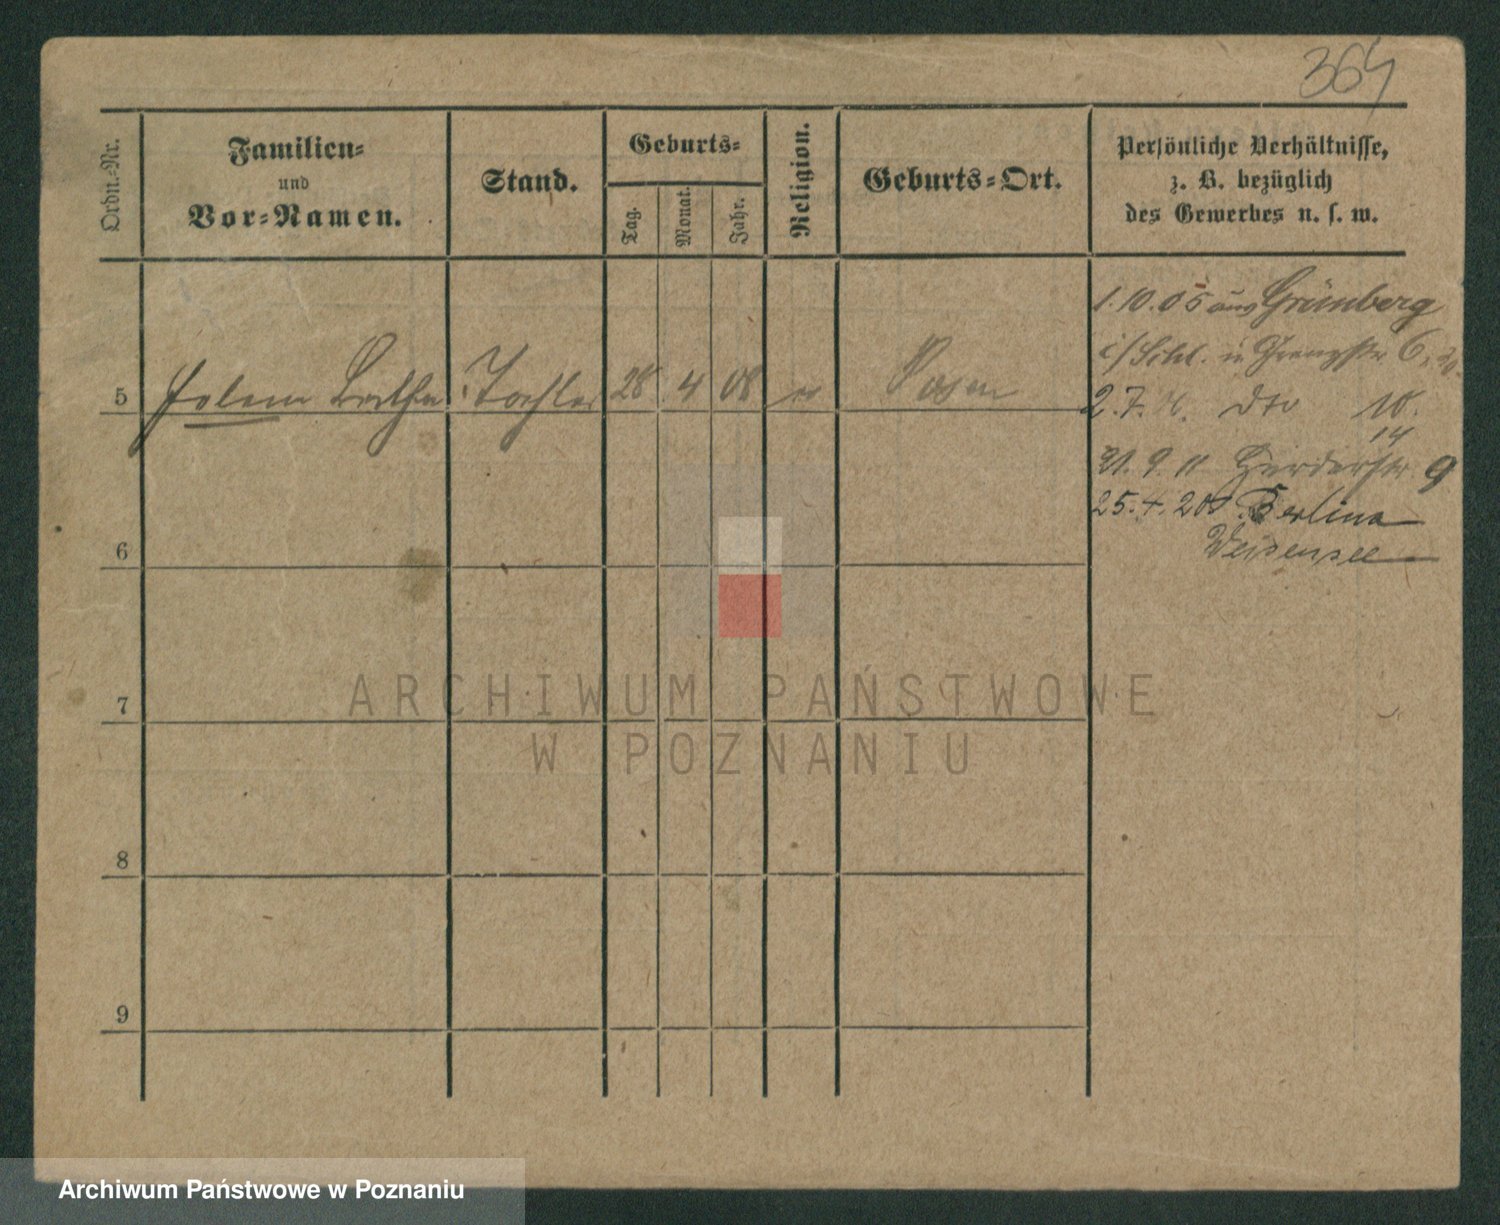 364
Ordn.-Nr.
Familien-
und
Vor-Namen.
Stand.
Geburts-
Tag.
Monat.
Jahr.
Religion.
Geburts-Ort.
Persönliche Verhältnisse,
z. B. bezüglich
des Gewerbes u. s. w.
1.10.05 aus Grünberg
i/Schl. in Grenzstr. 6,
5 Helene Bertha Tochter 28 4 08 Posen
2.7. dto 10.
14
21.9.11 Herderstr. 9
25.4.20 Berlin
Weisensee
6
7
8
9
ARCHIWUM PAŃSTWOWE
W POZNANIU
Archiwum Państwowe w Poznaniu